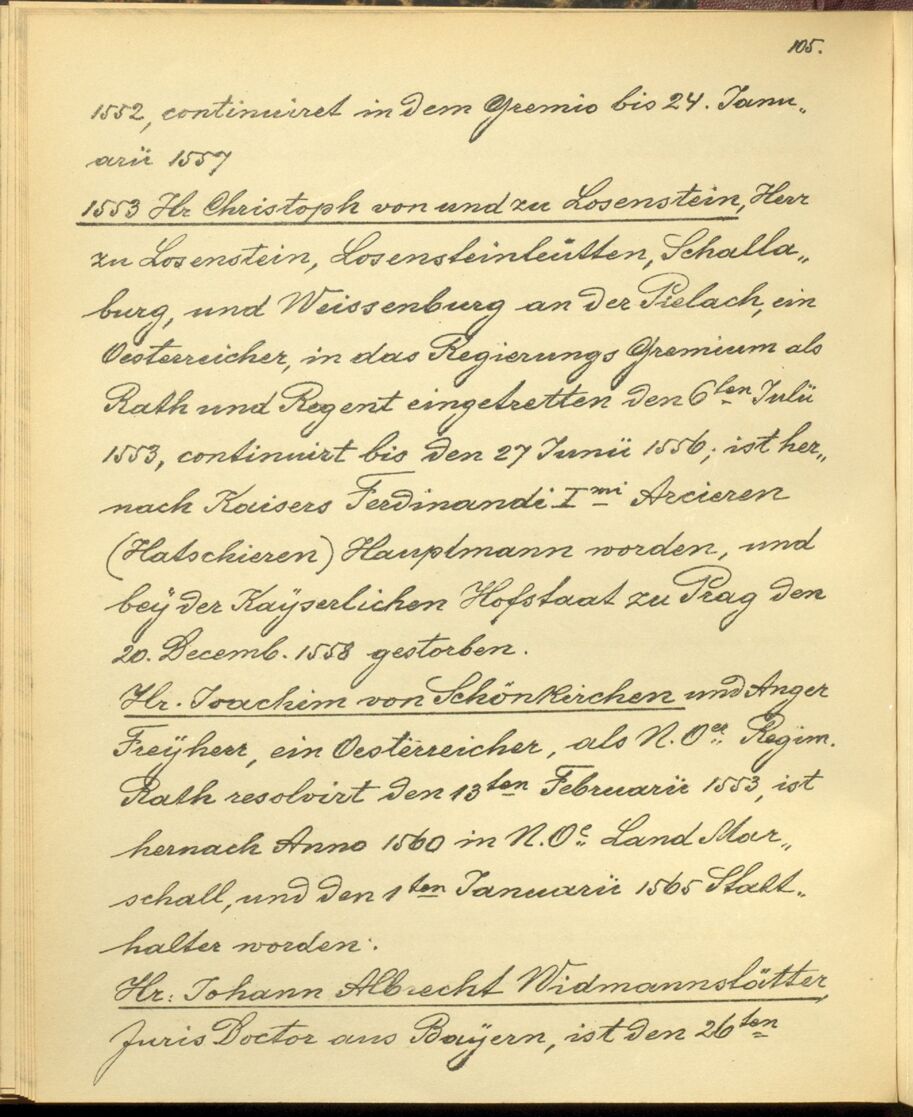 105.
1552, continuiret in dem Gremio bis 24. Janu„
arii 1557
1553 Hr Christoph von und zu Losenstein, Herr
zu Losenstein, Losensteinleütten, Schalla„
burg, und Weissenburg an der Pielach, ein
Oesterreicher, in das Regierungs Gremium als
Rath und Regent eingetretten den 6ten Julii
1553, continuirt bis den 27 Junii 1556; ist her„
nach Kaisers Ferdinandi I mi Arcieren
(Hatschieren) Hauptmann worden, und
beÿ der Kaÿserlichen Hofstaat zu Prag den
20. Decemb. 1558 gestorben.
Hr. Joachim von Schönkirchen und Anger
Freÿherr, ein Oesterreicher, als N. Oer Regim.
Rath resolvirt den 13ten Februarii 1553, ist
hernach Anno 1560 in N. Oe. Land Mar„
schall, und den 1ten Januarii 1565 Statt„
halter worden.
Hr: Johann Albrecht Widmannstätter,
Juris Doctor aus Baÿern, ist den 26ten